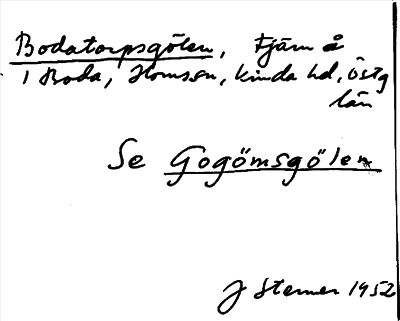 Bodatorpsgölen, tjärn å
i Boda, Hornsen, Kinda hd, Östg
län
Se Gogömsgölen
J Sterner 1952